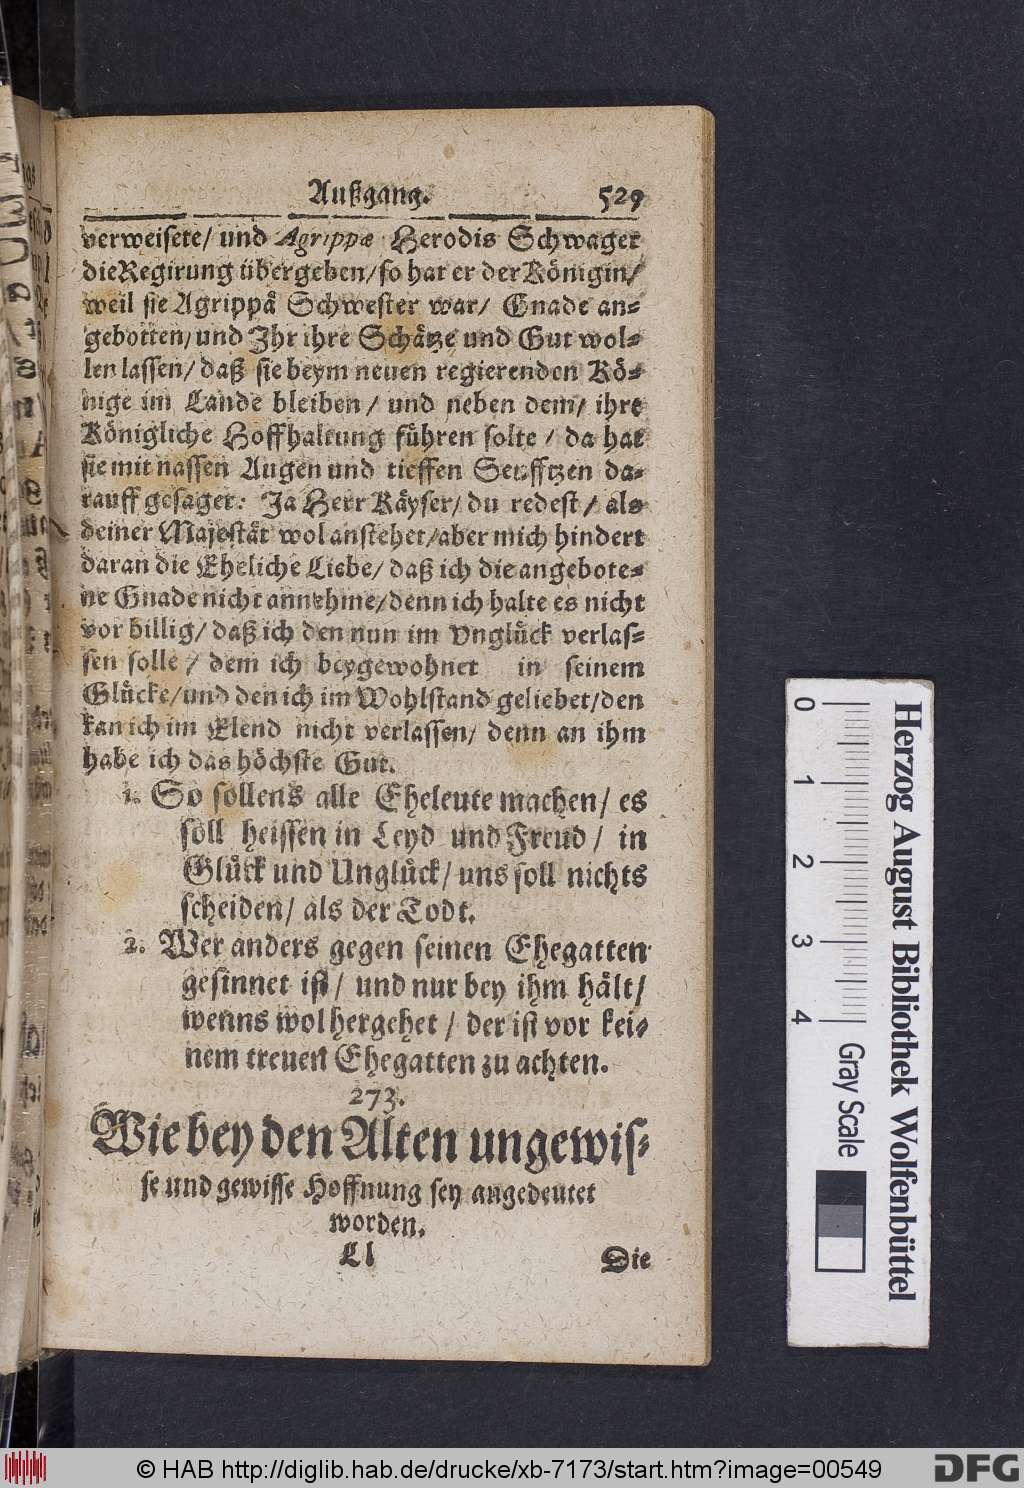 Außgang. 529
verweisete/ und Agrippæ Herodis Schwager
die Regirung übergeben/ so hat er der Königin/
weil sie Agrippå Schwester war/ Gnade an-
gebotten/ und Ihr ihre Schätze und Gut wol-
len lassen/ daß sie beym neuen regierenden Kö-
nige im Lande bleiben/ und neben dem/ ihre
Königliche Hoffhaltung führen solte/ da hat
sie mit nassen Augen und tieffen Seufftzen da-
rauff gesaget: Ja Herr Käyser/ du redest/ als
deiner Majestät wol anstehet/ aber mich hindert
daran die Eheliche Liebe/ daß ich die angebote-
ne Gnade nicht annehme/ denn ich halte es nicht
vor billig/ daß ich den nun im Vnglück verlas-
sen solle/ dem ich beygewohnet in seinem
Glücke/ und den ich im Wohlstand geliebet/ den
kan ich im Elend nicht verlassen/ denn an ihm
habe ich das höchste Gut.
1. So sollens alle Eheleute machen/ es
soll heissen in Leyd und Freud/ in
Glück und Unglück/ uns soll nichts
scheiden/ als der Todt.
2. Wer anders gegen seinen Ehegatten
gesinnet ist/ und nur bey ihm hält/
wenns wol hergehet/ der ist vor kei-
nem treuen Ehegatten zu achten.
273.
Wie bey den Alten ungewis-
se und gewisse Hoffnung sey angedeutet
worden.
Ll Die
0 1 2 3 4
Herzog August Bibliothek Wolfenbüttel
Gray Scale
© HAB http://diglib.hab.de/drucke/xb-7173/start.htm?image=00549
DFG